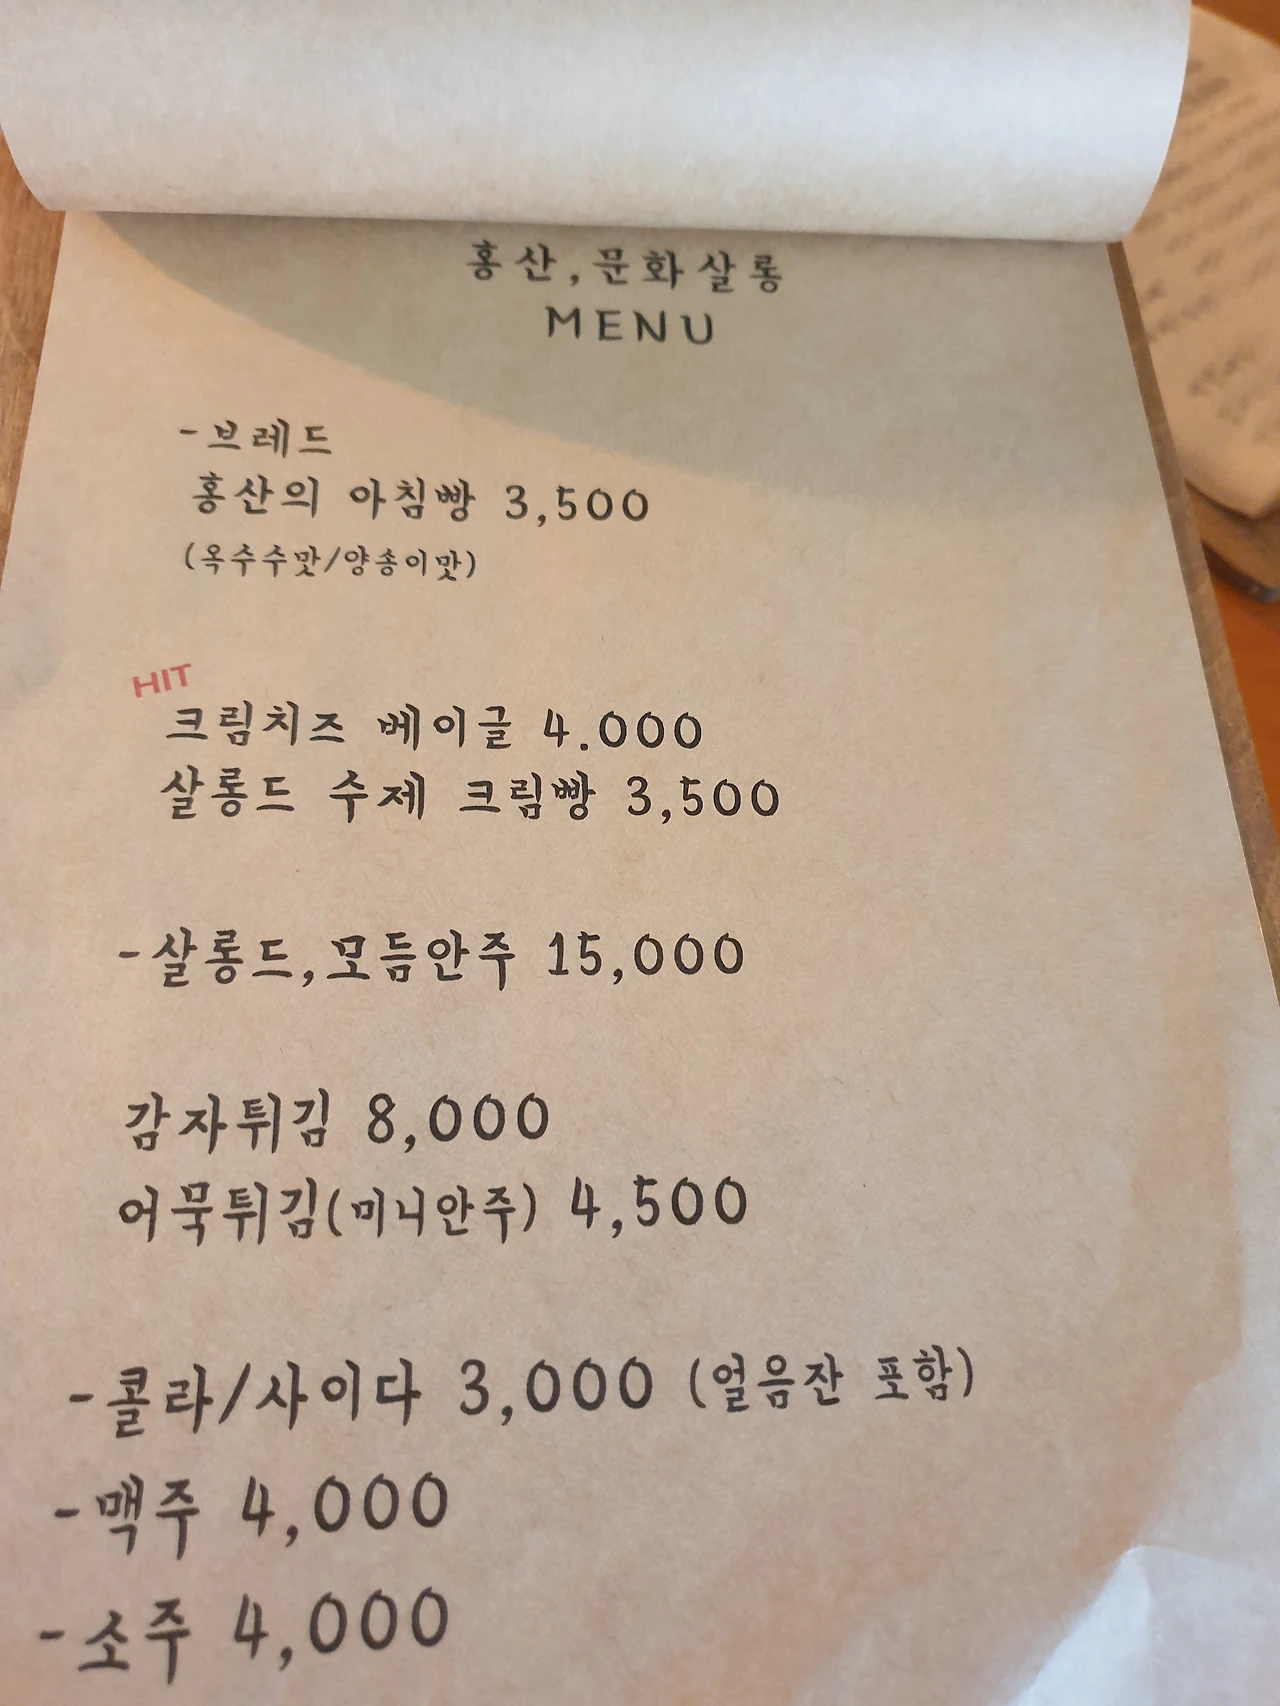 홍산,문화살롱
MENU
-브레드
홍산의 아침빵 3,500
(옥수수맛/양송이맛)
HIT
크림치즈 베이글 4.000
살롱드 수제 크림빵 3,500
-살롱드,모듬안주 15,000
감자튀김 8,000
어묵튀김(미니안주) 4,500
-콜라/사이다 3,000 (얼음잔 포함)
-맥주 4,000
-소주 4,000